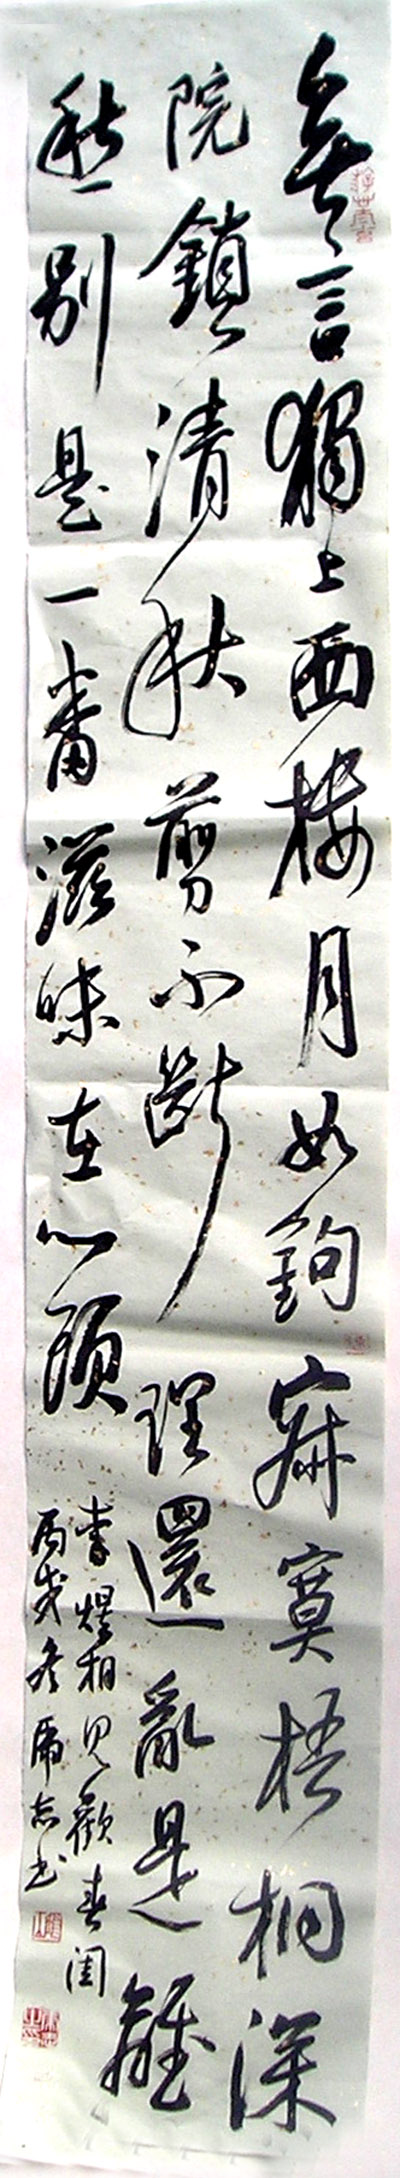 無言獨上西樓月如鉤寂寞梧桐深
院鎖清秋剪不斷理還亂是離
愁別是一番滋味在心頭
李煜相見歡春閨
丙戌冬席志書